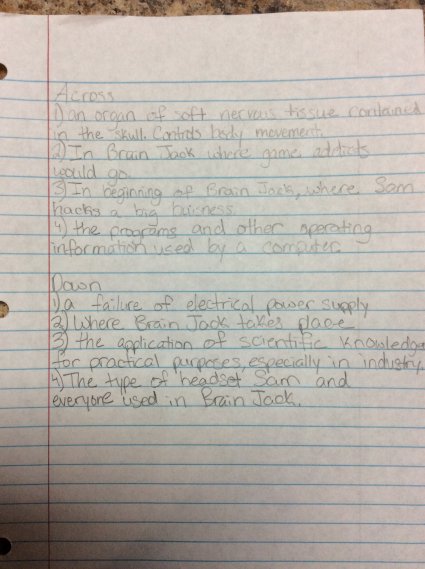 Across
1) an organ of soft nervous tissue contained
in the skull. Controls body movement.
2) In Brain Jack where game addicts
would go.
3) In beginning of Brain Jack, where Sam
hacks a big buisness.
4) the programs and other operating
information used by a computer.
Down
1) a failure of electrical power supply
2) Where Brain Jack takes place
3) the application of scientific knowledge
for practical purposes, especially in industry.
4) The type of headset Sam and
everyone used in Brain Jack.